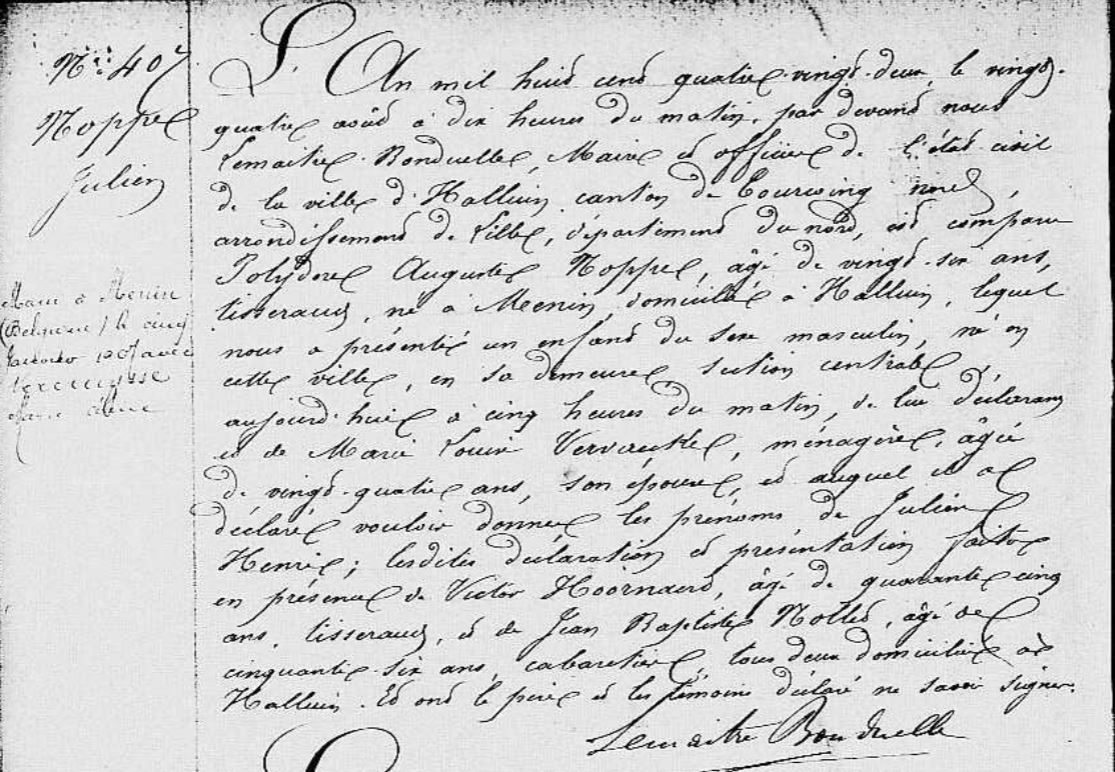 N° 407
Noppe
Julien
Marié à Menin
(Belgique) le cinq
1907 avec
Vercruysse
L'An mil huit cent quatre-vingt-deux, le vingt-
quatre août à dix heures du matin, par devant nous
Lemaitre Bonduelle, Maire et officier de l'état civil
de la ville d'Halluin canton de Tourcoing nord,
arrondissement de Lille, département du nord, est comparu
Polydore Auguste Noppe, âgé de vingt-six ans,
tisserand, né à Menin, domicilié à Halluin, lequel
nous a présenté un enfant du sexe masculin, né en
cette ville, en sa demeure section centrale,
aujourd'hui à cinq heures du matin, de lui déclarant
et de Marie Louise Vervaecke, ménagère, âgée
de vingt-quatre ans, son épouse, et auquel il a
déclaré vouloir donner les prénoms de Julien
Henri; lesdites déclaration et présentation faites
en présence de Victor Hoornaert, âgé de quarante-cinq
ans, tisserand, et de Jean Baptiste Nollet, âgé de
cinquante-six ans, cabaretier, tous deux domiciliés à
Halluin. Et ont le père et les témoins déclaré ne savoir signer.
Lemaitre Bonduelle